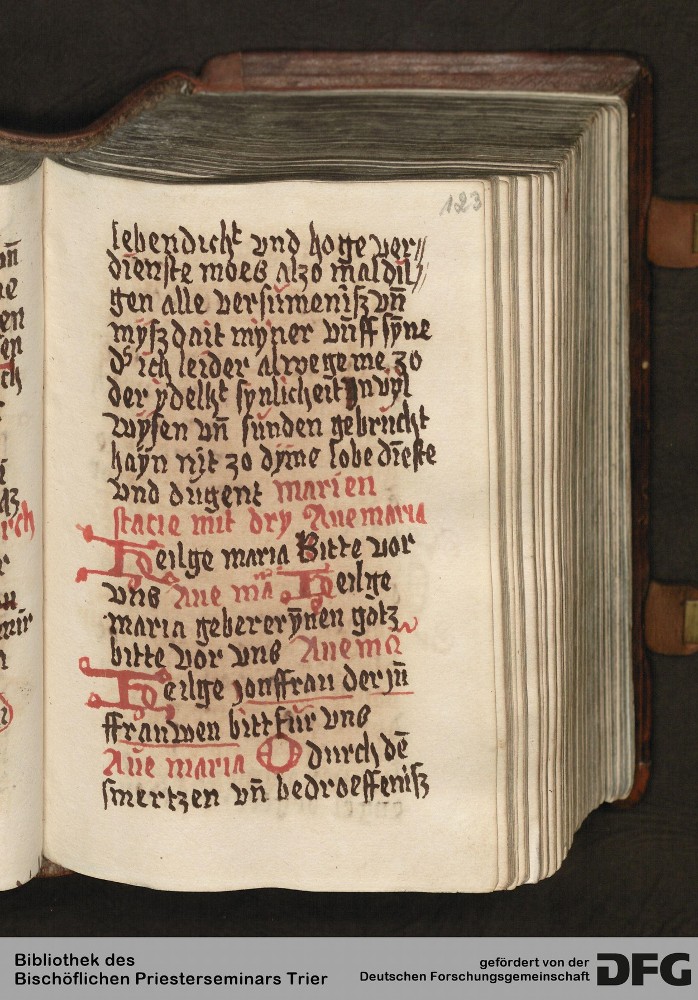 123
lebendicht vnd hoge ver//
dienste moes alzo mȧldil//
gen alle versumeniſz vn̄
myſzdait myner vūff ſyne
ich leider alwege me zo
der ydelkt ſynlicheit yn vyl
wyſen vn̄ ſunden gebrucht
hayn nyt zo dyme lobe diēſte
vnd dugent marien
ſtacie mit dry Aue maria
Heilge maria Bitte vor
vns Aue ma Heilge
maria gebererȳnen gotz
bitte vor vns Aue ma
Heilge jonffrau der jn̄
ffrauwen bitt fur vns
Aue maria O durch dē
ſmertzen vn̄ bedroeffeniſz
Bibliothek des
Bischöflichen Priesterseminars Trier
gefördert von der
Deutschen Forschungsgemeinschaft
DFG